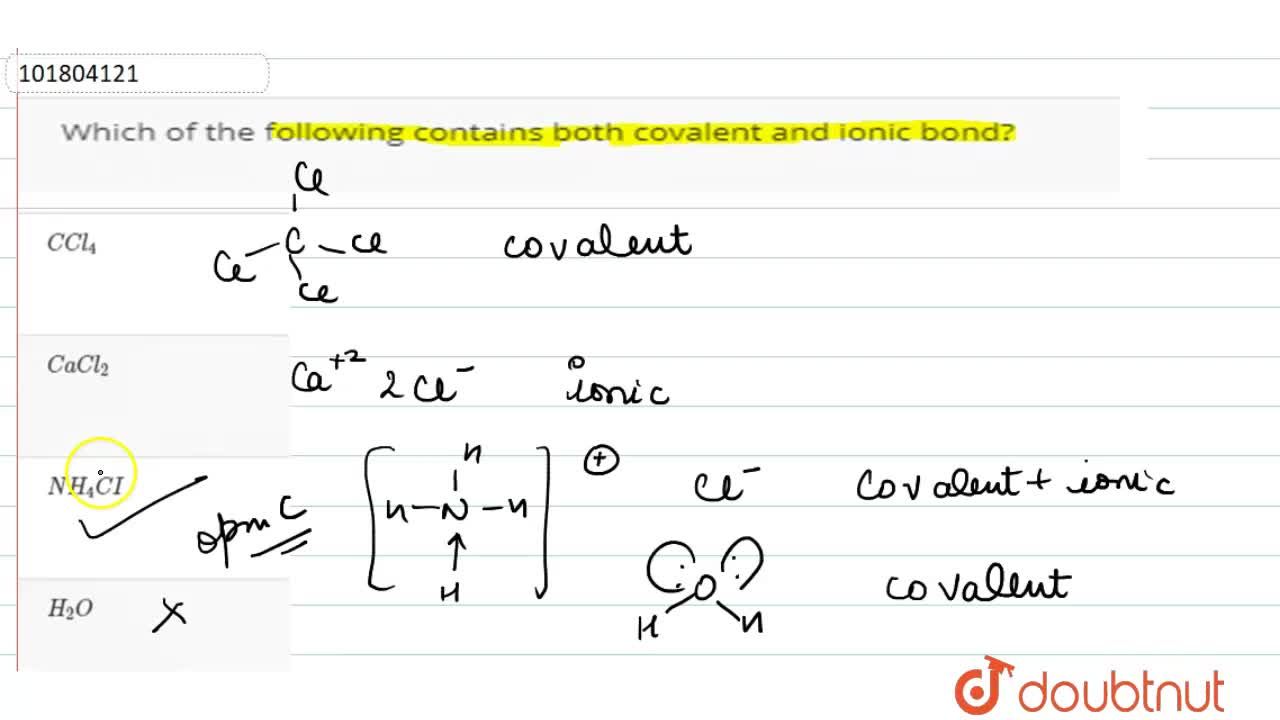 101804121
Which of the following contains both covalent and ionic bond?
Cl
CCl4 Cl C Cl Cl covalent
CaCl2 Ca+2 2Cl− ionic
NH4CI opn C [ H H—N—H H ] + Cl− covalent + ionic
H2O X H O H covalent
doubtnut